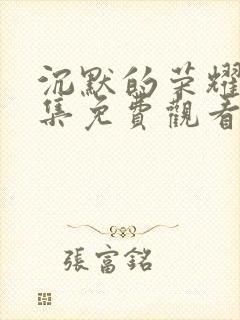 沉默的荣耀
集免費觀看
張富銘